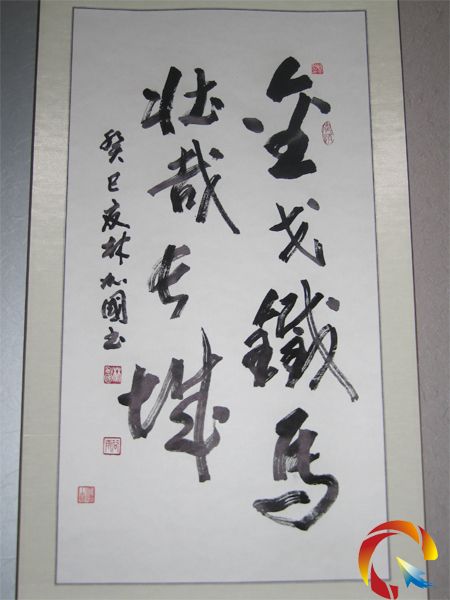 金戈鐵馬
壯哉长城
癸巳夜林加國书